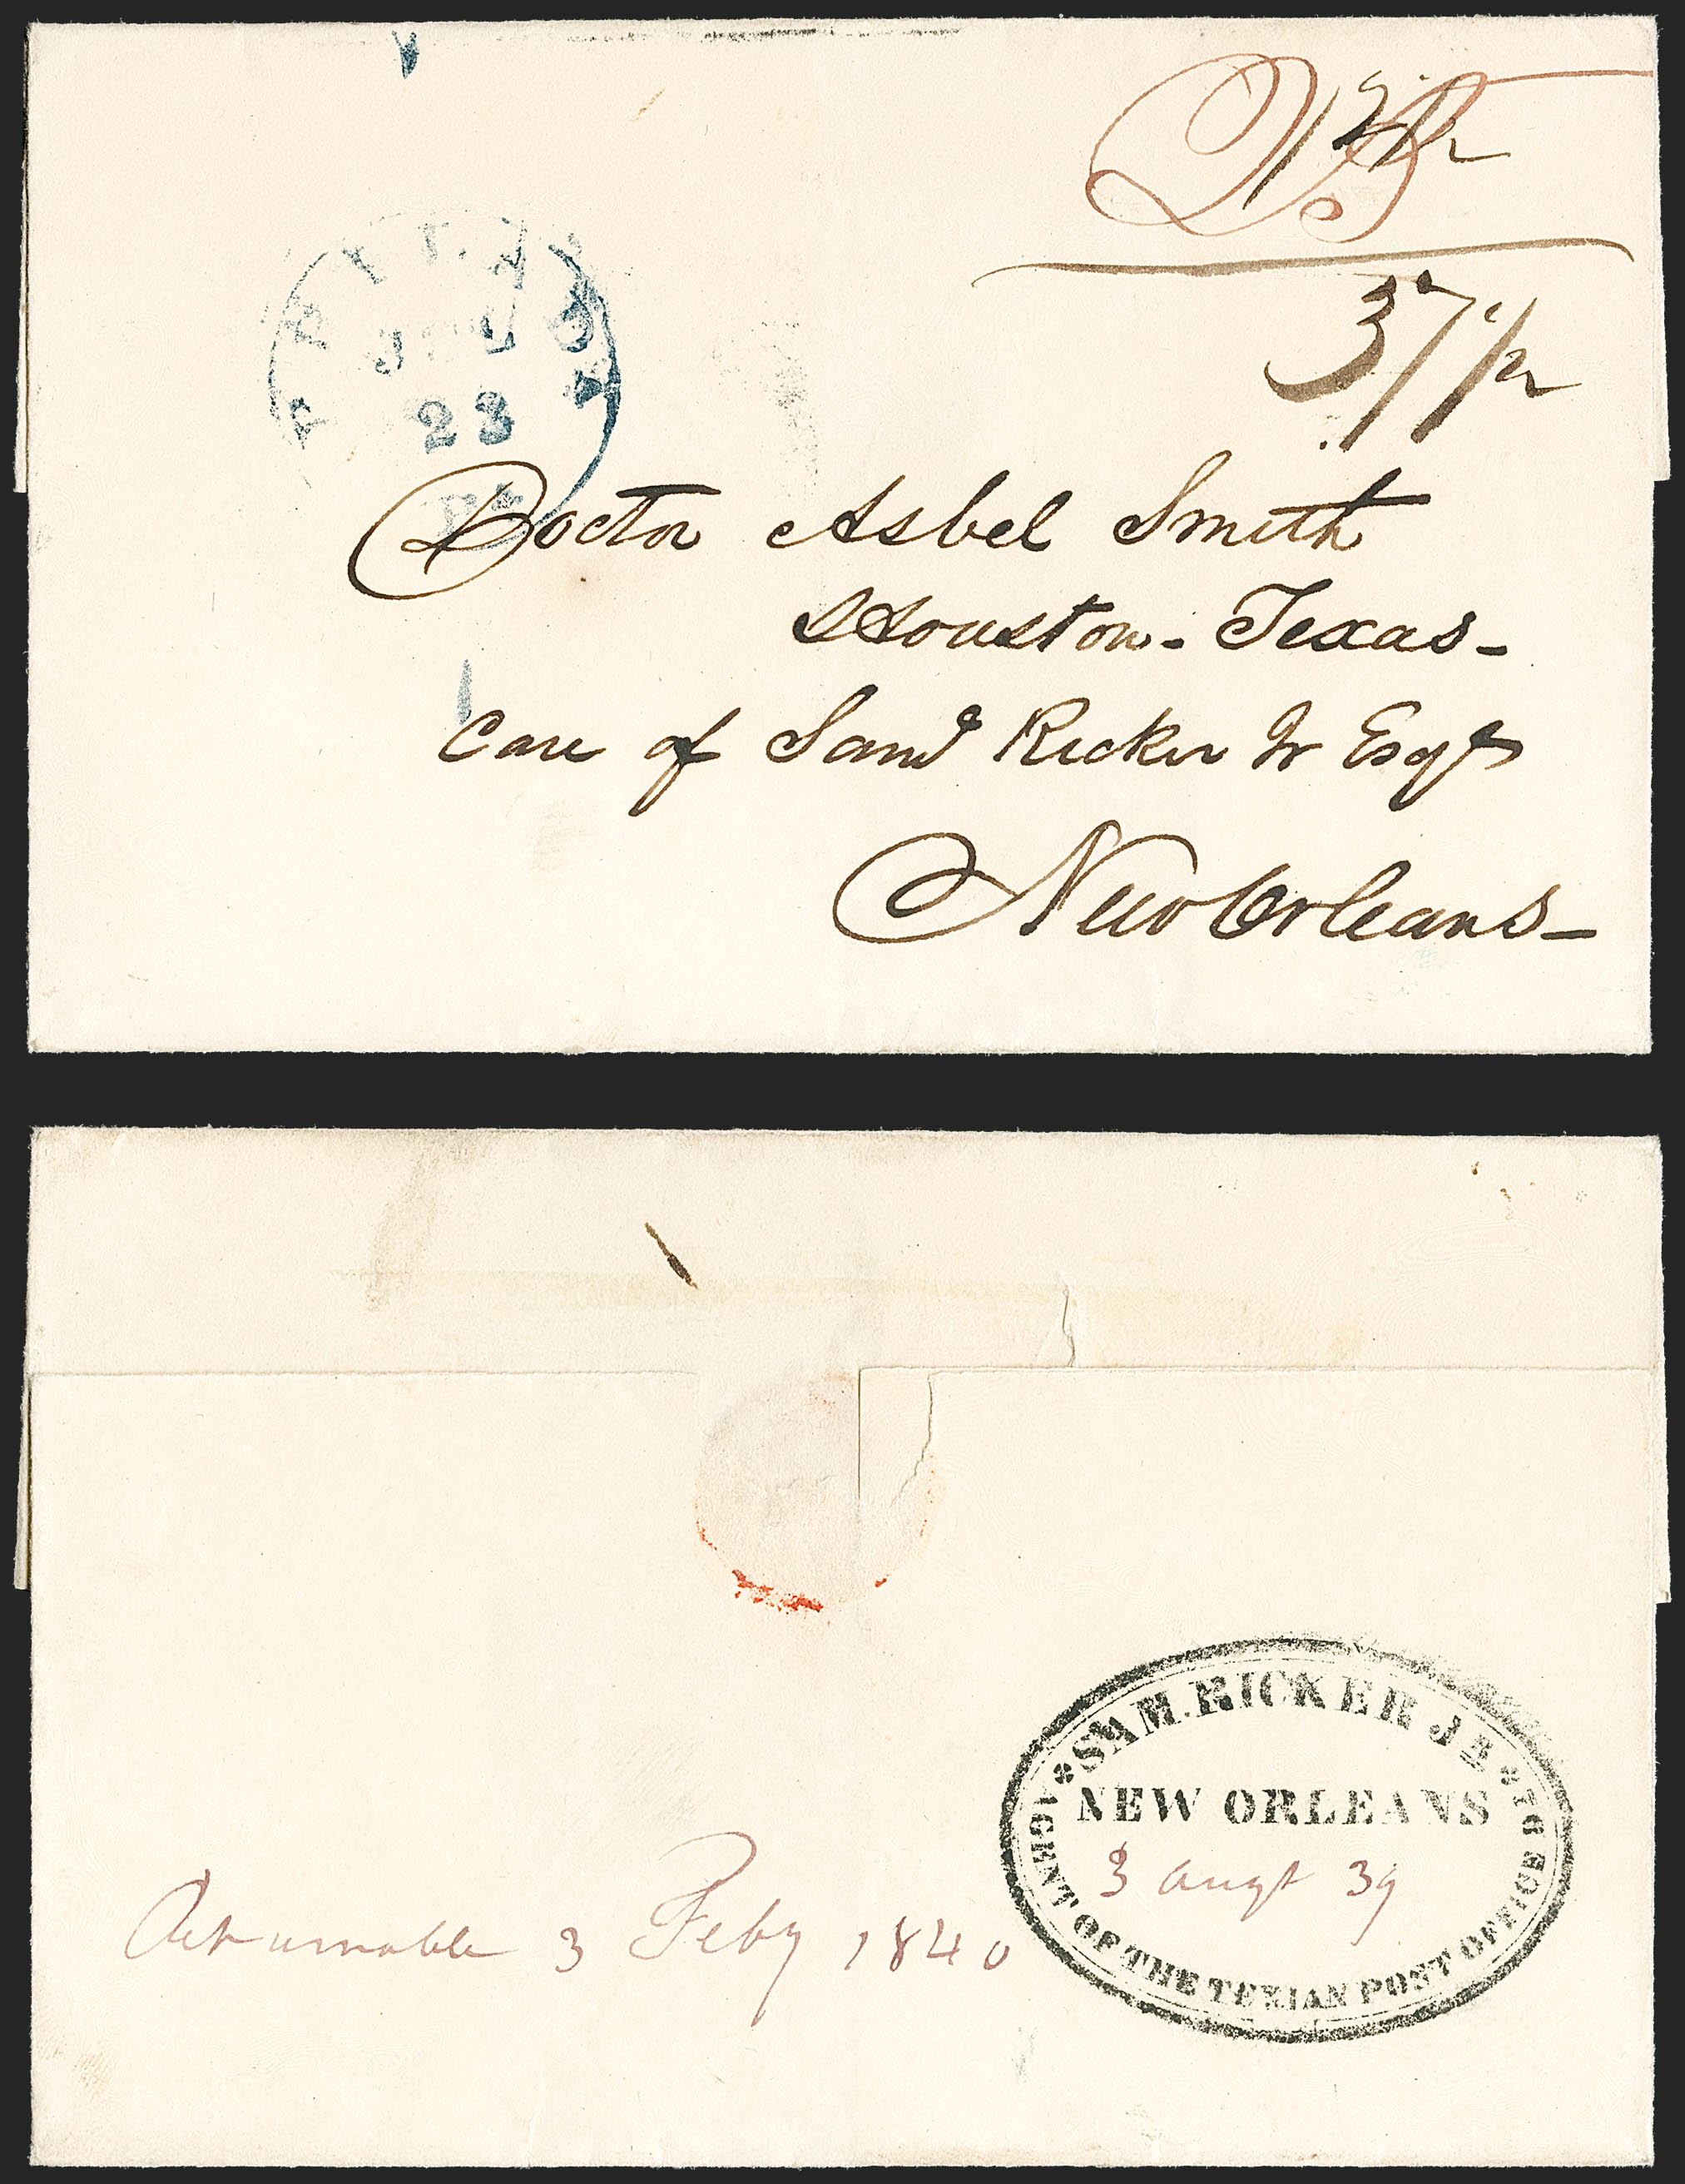 12 1/2
37 1/2
JUL
23
Pa
Doctor Asbel Smith
Houston - Texas -
Care of Saml Ricker Jr Esqr
New Orleans -
* SAM. RICKER JR *
NEW ORLEANS
3 Augt 39
AGENT OF THE TEXIAN POST OFFICE DEPT
Returnable 3 Feby 1840